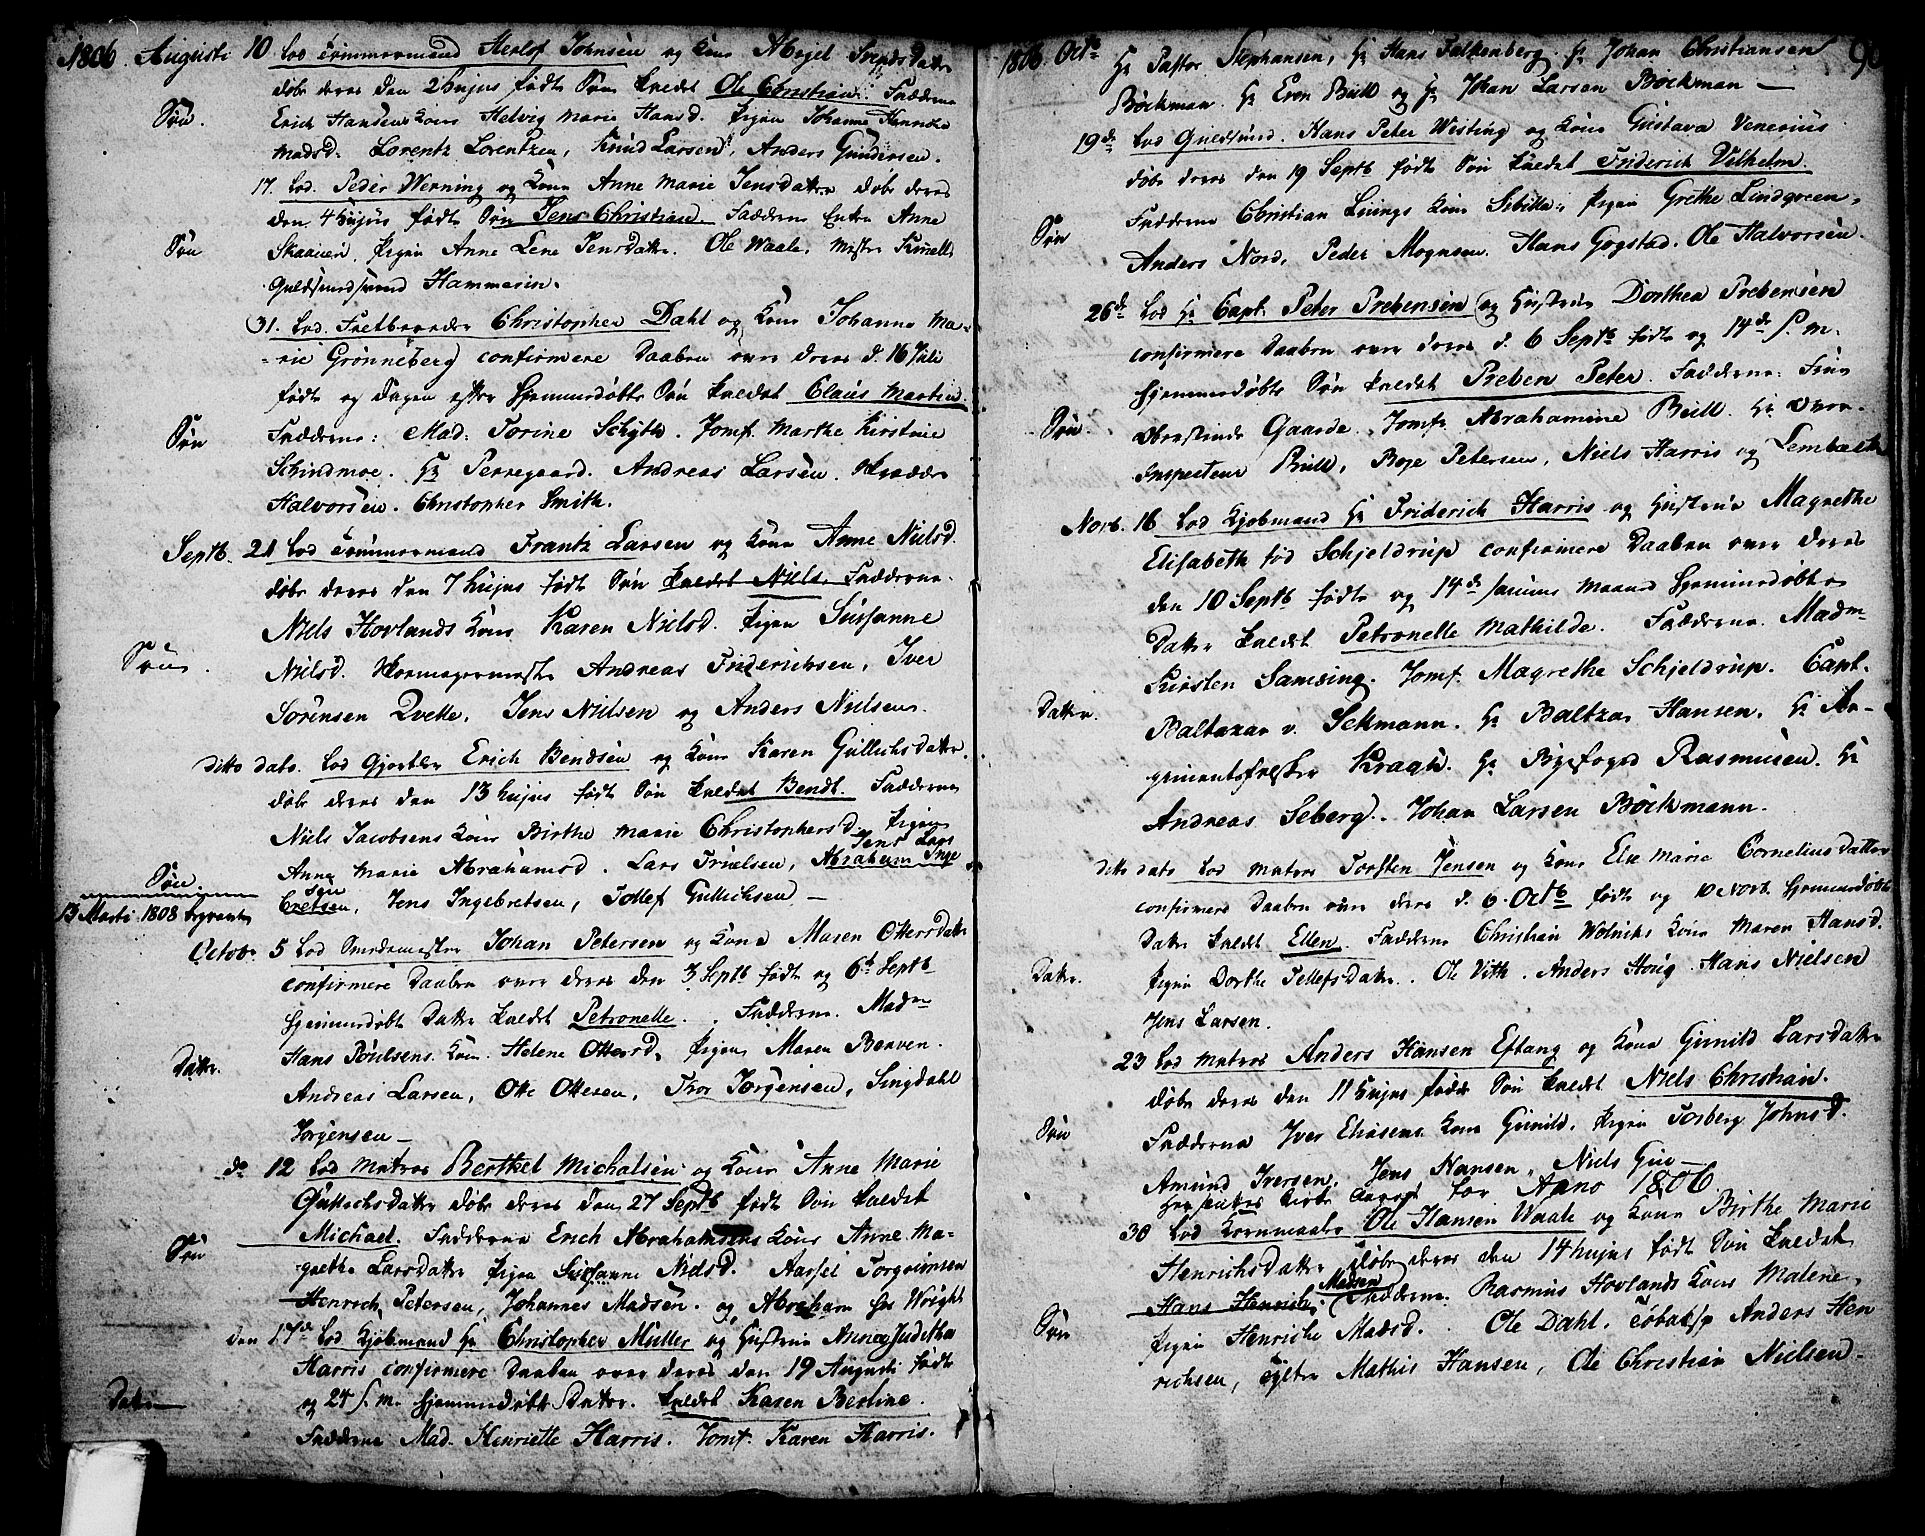 1806. Augusti 10. Lod Tømmermand Herlof Johnsen og Kone Abegel Svendsdatter
døbe deres den 2 hujus fødte Søn kaldet Ole Christian. Fadderne
Søn.
Erich Hansens Kone Helvig Marie Hansd. Pigen Johanne
Madsd. Lorentz Lorentzen, Knud Larsen, Anders Gundersen.
17. Lod. Peder Werning og Kone Anne Marie Jensdatter døbe deres
den 4 hujus fødte Søn Jens Christian. Fadderne Enken Anne
Søn
Pigen Anne Lene Jensdatter. Ole Waale. Mester
Guldsmedsvend Hammerin.
31. Lod. Christopher Dahl og Kone Johanne Ma-
rie Grønneberg confirmere Daaben over deres d. 16 Juli
fødte og Dagen efter hjemmedøbte Søn kaldet Claus Martin
Søn
Fadderne: Mad: Torine Schytte. Jomf. Marthe Kirstine
Schindmoe. Hr Perregaard. Andreas Larsen.
Halvorsen. Christopher Smith.
Septb. 21 Lod Tømmermand Frantz Larsen og Kone Anne Nielsd.
døbe deres den 7 hujus fødte Søn kaldet Niels. Fadderne.
Niels Hovlands Kone Karen Nielsd. Pigen Susanne
Søn.
Nielsd. Andreas Friderichsen, Iver
Sørensen Qvelle, Jens Nielsen og Anders Nielsen.
ditto dato. Lod Gjørtler Erich Bendsen og Kone Karen Gullichsdatter
døbe deres den 13 hujus fødte Søn kaldet Bendt. Fadderne
Niels Jacobsens Kone Birthe Marie Christophersd. Pigen
Jens Lars
Anne Marie Abrahamsd. Lars Truelsen, Abraham Inge
Søn
sen
bretsen, Jens Ingebretsen, Tollef Gullichsen —
13 Marti 1808
Octob. 5 Lod Smedemester Johan Petersen og Kone Maren Ottersdatter
confirmere Daaben over deres den 3 Septb fødte og 6te Septb
hjemmedøbte Datter kaldet Petronelle. Fadderne. Madm
Hans Poulsens Kone Helene Ottersd. Pigen Maren Berven.
Datter.
Andreas Larsen, Otte Ottesen, Thor Jørgensen, Lingdahl
Jørgensen —
do 12 Lod Matros Berthel Michalsen og Kone Anne Marie
Gullichsdatter døbe deres den 27 Septb fødte Søn kaldet
Michael. Fadderne Erich Abrahamsens Kone Anne Ma-
Søn
grethe Larsdatter Pigen Susanne Nielsd. Aarsel Torgrimsen
Henrich Petersen, Johannes Madsen. og Abraham hos Wright
den 17de Lod Kjøbmand Hr Christopher Müller og Hustrue Anne Juditha
Harris confirmere Daaben over deres den 19 Augusti fødte
og 24 s. m. hjemmedøbte Datter. kaldet Karen Berline.
Datter
Fadderne Mad. Henriette Harris. Jomf. Karen Harris.
1806 Octb Hr Pastor Stephansen, Hr Hans Falkenberg. Hr Johan Christiansen
Bøckman. Hr Even Bull og Hr Johan Larsen Bøckman —
19de Lod Guldsmed. Hans Peter Wisting og Kone Gustava Venerius
døbe deres den 19 Septb fødte Søn kaldet Friderich Vilhelm.
Søn
Fadderne Christian Linings Kone Sibilla, Pigen Grethe Lindgreen,
Anders Nord, Peder Mogensen. Hans Gogstad. Ole Halvorsen.
26de Lod Hr Capt. Peter Prebensen og Hustrue Dorthea Prebensen
confirmere Daaben over deres d. 6 Septb fødte og 14de s. m.
hjemmedøbte Søn kaldet Preben Peter. Fadderne: Frue
Søn.
Gaarde. Jomfr Abrahamine Bull. Hr Over-
Inspecteur Bull, Boje Petersen, Niels Harris og Lembach
Novb. 16 Lod Kjøbmand Hr Friderich Harris og Hustrue Magrethe
Elisabeth fød Schjeldrup confirmere Daaben over deres
den 10 Septb fødte og 14de samme Maaned hjemmedøbte
Datter kaldet Petronelle Mathilde. Fadderne. Madm
Kirsten Samsing. Jomf. Magrethe Schjeldrup. Capt.
Datter.
Baltazar v. Seckmann. Hr Baltzar Hansen. Hr Re-
gimentsfelskjer Kragh. Hr Byefoged Rasmusen. Hr
Andreas Seberg. Johan Larsen Bøckmann.
ditto dato Lod Matros Torsten Jensen og Kone Else Marie Corneliusdatter
confirmere Daaben over deres d. 6. Octb fødte og 10 Novb. hjemmedøbte
Datter kaldet Ellen. Fadderne Christian Wolnicks Kone Maren Hansd.
Datter.
Pigen Dorthe Tellefsdatter. Ole Vith. Anders Houg. Hans Nielsen
Jens Larsen.
23 Lod Matros Anders Hansen Eftang og Kone Gunild Larsdatter
døbe deres den 11 hujus fødte Søn kaldet Niels Christian.
Søn
Fadderne Iver Eliasens Kone Gunild. Pigen Torberg Johnsd.
Amund Iversen. Jens Hansen, Niels Gu-
for Anno 1806
30 Lod Kornmaaler Ole Hansen Waale og Kone Birthe Marie
Henrichsdatter døbe deres den 14 hujus fødte Søn kaldet
Madsen
Hans Henrich, Fadderne. Rasmus Hovlands Kone Malene,
Søn
Pigen Henriche Madsd. Ole Dahl. Tobaksp Anders Hen
richsen, Mathis Hansen, Ole Christian Nielsen.